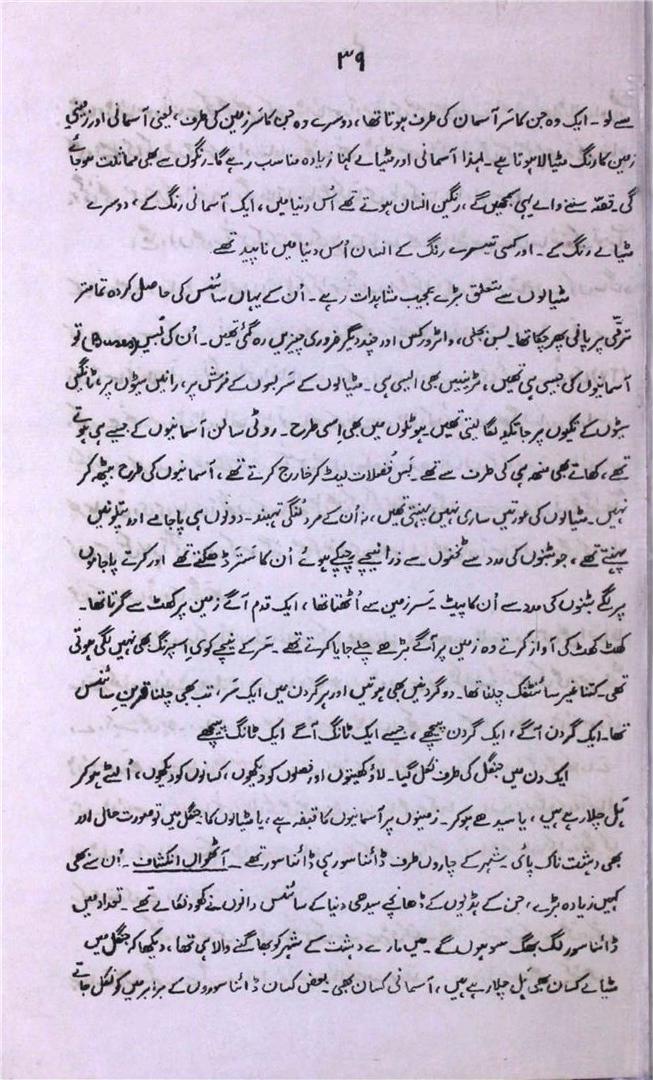 ۳۹
سے لو ۔ ایک وہ جن کا سر آسمان کی طرف ہوتا تھا، دوسرے وہ جن کا سر زمین کی طرف، یعنی آسمانی اور زمینی
زمین کا رنگ مٹیالا ہوتا ہے ۔ لہذا آسمانی اور مٹیالے کہنا زیادہ مناسب رہے گا۔ رنگوں سے بھی مماثلت ہو جائے
گی ۔ قصّہ سننے والے یہی سمجھیں گے، رنگین انسان ہوتے تھے اُس دنیا میں، ایک آسمانی رنگ کے، دوسرے
مٹیالے رنگ کے ۔ اور کسی تیسرے رنگ کے انسان اُس دنیا میں ناپید تھے
مٹیالوں سے متعلق بڑے عجیب مشاہدات رہے ۔ اُن کے یہاں سائنس کی حاصل کردہ تمامتر
ترقّی پر پانی پھر چکا تھا۔ بس بجلی، واٹر ورکس اور چند دیگر ضروری چیزیں رہ گئی تھیں ۔ اُن کی بسیں (Buses) تو
آسمانیوں کی جیسی ہی تھیں، ٹرینیں بھی ایسی ہی ۔ مٹیالوں کے سر بسوں کے فرش پر، رانیں سیٹوں پر، ٹانگیں
سیٹوں کے تکیوں پر جا تکیہ لگا لیتی تھیں۔ ہوٹلوں میں بھی اسی طرح ۔ روٹی سالن آسمانیوں کے جیسے ہی ہوتے
تھے، کھاتے بھی منھ ہی کی طرف سے تھے ۔ بس فضلات لیٹ کر خارج کرتے تھے، آسمانیوں کی طرح بیٹھ کر
نہیں ۔ مٹیالوں کی عورتیں ساری نہیں پہنتی تھیں، نہ اُن کے مرد لُنگی تہبند ۔ دونوں ہی پاجامے اور پتلونیں
پہنتے تھے، جو بٹنوں کی مدد سے ٹخنوں سے ذرا نیچے چپکے ہوئے اُن کا ستر ڈھکتے تھے اور کرتے پاجاموں
پر لگے بٹنوں کی مدد سے اُن کا پیٹ ۔ سر زمین سے اُٹھتا تھا، ایک قدم آگے زمین پر کھٹ سے گرتا تھا ۔
کھٹ کھٹ کی آواز کرتے وہ زمین پر آگے بڑھے چلے جایا کرتے تھے ۔ سر کے نیچے کوئی اِسپرنگ بھی نہیں لگی ہوتی
تھی ۔ کتنا غیر سائنٹفک چلنا تھا۔ دو گردنیں بھی ہوتیں اور ہر گردن میں ایک سر، تب بھی چلنا قرینِ سائنس
تھا۔ ایک گردن آگے، ایک گردن پیچھے، جیسے ایک ٹانگ آگے ایک ٹانگ پیچھے
ایک دن میں جنگل کی طرف نکل گیا۔ لاؤ کھیتوں اور فصلوں کو دیکھوں، کسانوں کو دیکھوں، اُلٹے ہو کر
ہل چلا رہے ہیں، یا سیدھے ہو کر ۔ زمینوں پر آسمانیوں کا قبضہ ہے، یا مٹیالوں کا جنگل میں تو صورت حال اور
بھی دہشت ناک پائی ۔ شہر کے چاروں طرف ڈائنا سور ہی ڈائنا سور تھے ۔ آٹھواں انکشاف ۔ اُن سے بھی
کہیں زیادہ بڑے، جن کے ہڈیوں کے ڈھانچے سیدھی دنیا کے سائنس دانوں نے کھود نکالے تھے ۔ تعداد میں
ڈائنا سور لگ بھگ سو ہوں گے ۔ میں مارے دہشت کے شہر کو بھاگنے والا ہی تھا، دیکھا کہ جنگل میں
مٹیالے کسان بھی ہل چلا رہے ہیں، آسمانی کسان بھی ۔ بعض کسان ڈائنا سوروں کے برابر میں کو نکل جاتے